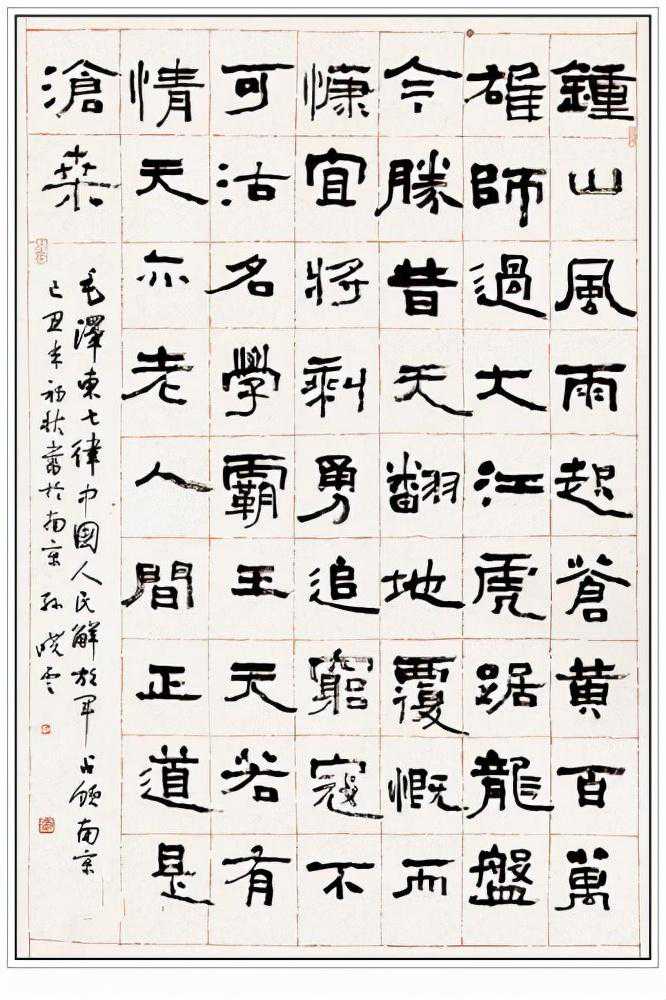 鍾山風雨起蒼黄百萬
雄師過大江虎踞龍盤
今勝昔天翻地覆慨而
慷宜將剩勇追窮寇不
可沽名學霸王天若有
情天亦老人間正道是
滄桑
毛澤東七律中國人民解放軍占領南京
己丑年初秋書於南京孫曉雲